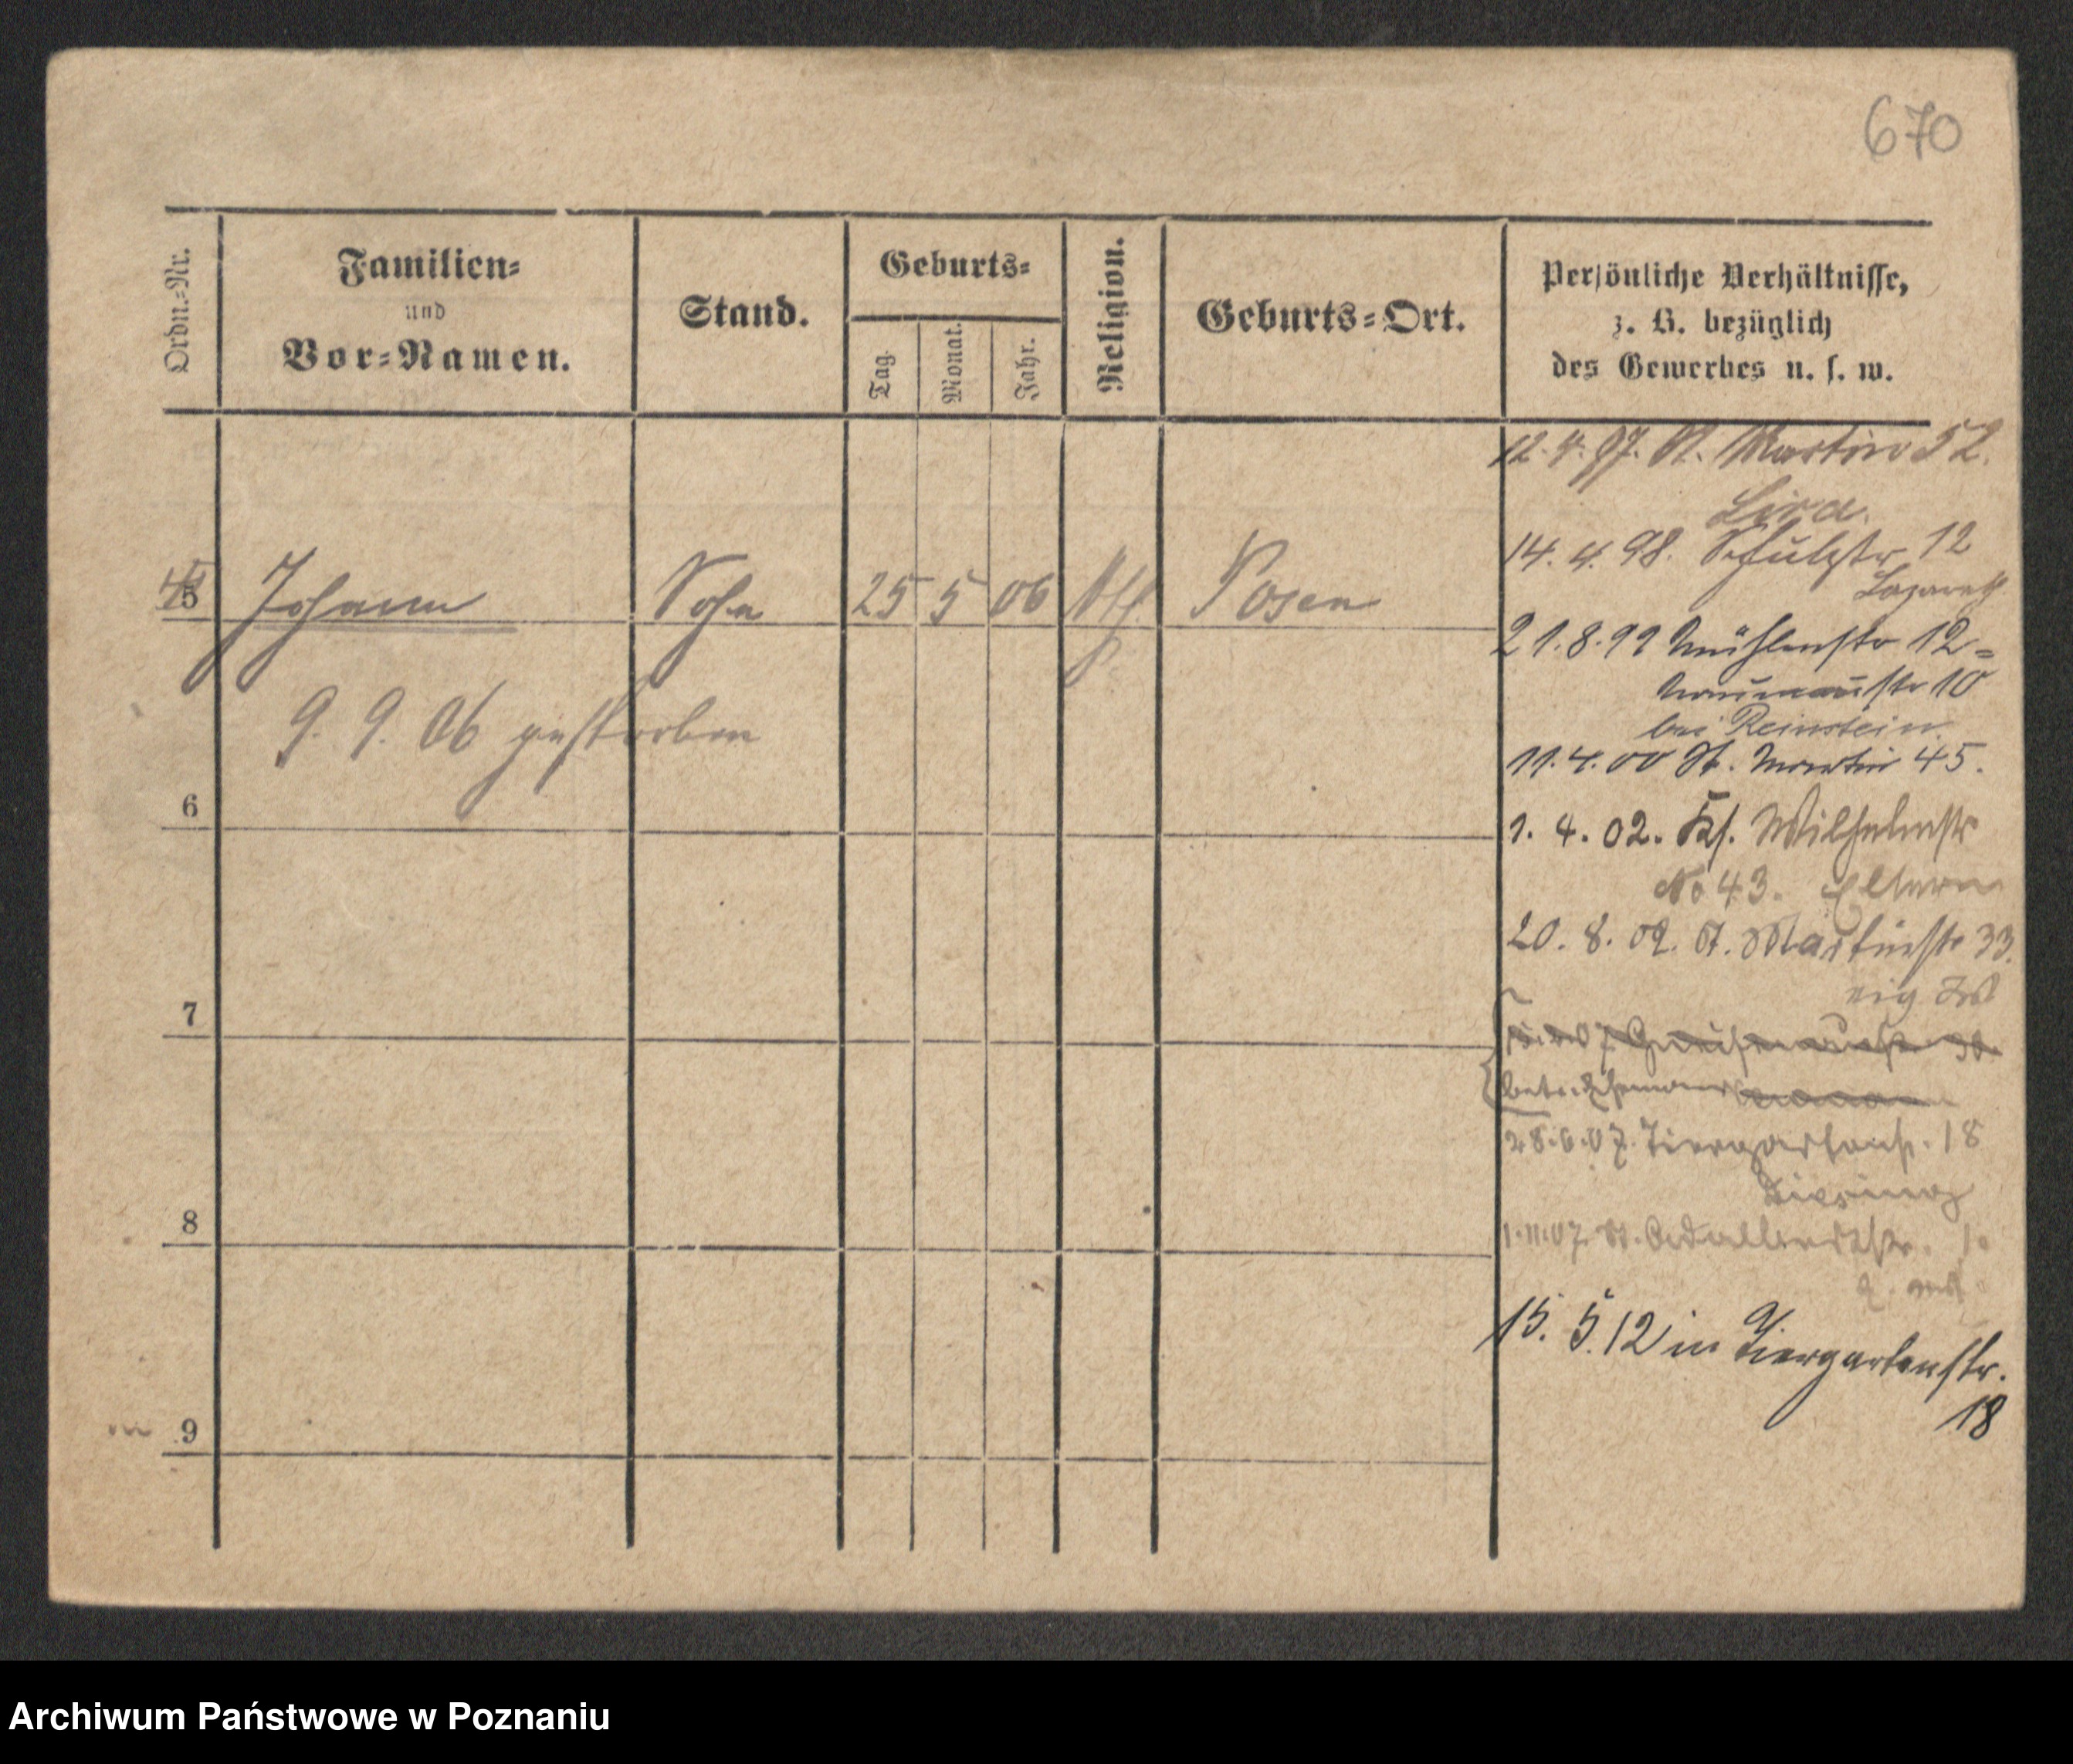 670
Ordn.-Nr.
Familien-
und
Vor-Namen.
Stand.
Geburts-
Tag.
Monat.
Jahr.
Religion.
Geburts-Ort.
Persönliche Verhältnisse,
z. B. bezüglich
des Gewerbes u. s. w.
12. 4. 97. St. Martin 52.
14. 4. 98. Schulstr 12
Lazareth
21. 8. 99 Mühlenstr 12 -
Naumannstr 10
bei Reinstein.
11. 4. 00 St. Martin 45.
1. 4. 02. Wilhelmstr
No 43. Eltern
20. 8. 02. St. Martinstr 33.
5
Johann
Sohn
25 5 06
kth
Posen
9. 9. 06 gestorben
6
7
28. 6. 07. Tiergartenstr. 18
8
1. 11. 07. St. Adalbertstr. 1
15. 5. 12 in Tiergartenstr.
18
9
Archiwum Państwowe w Poznaniu